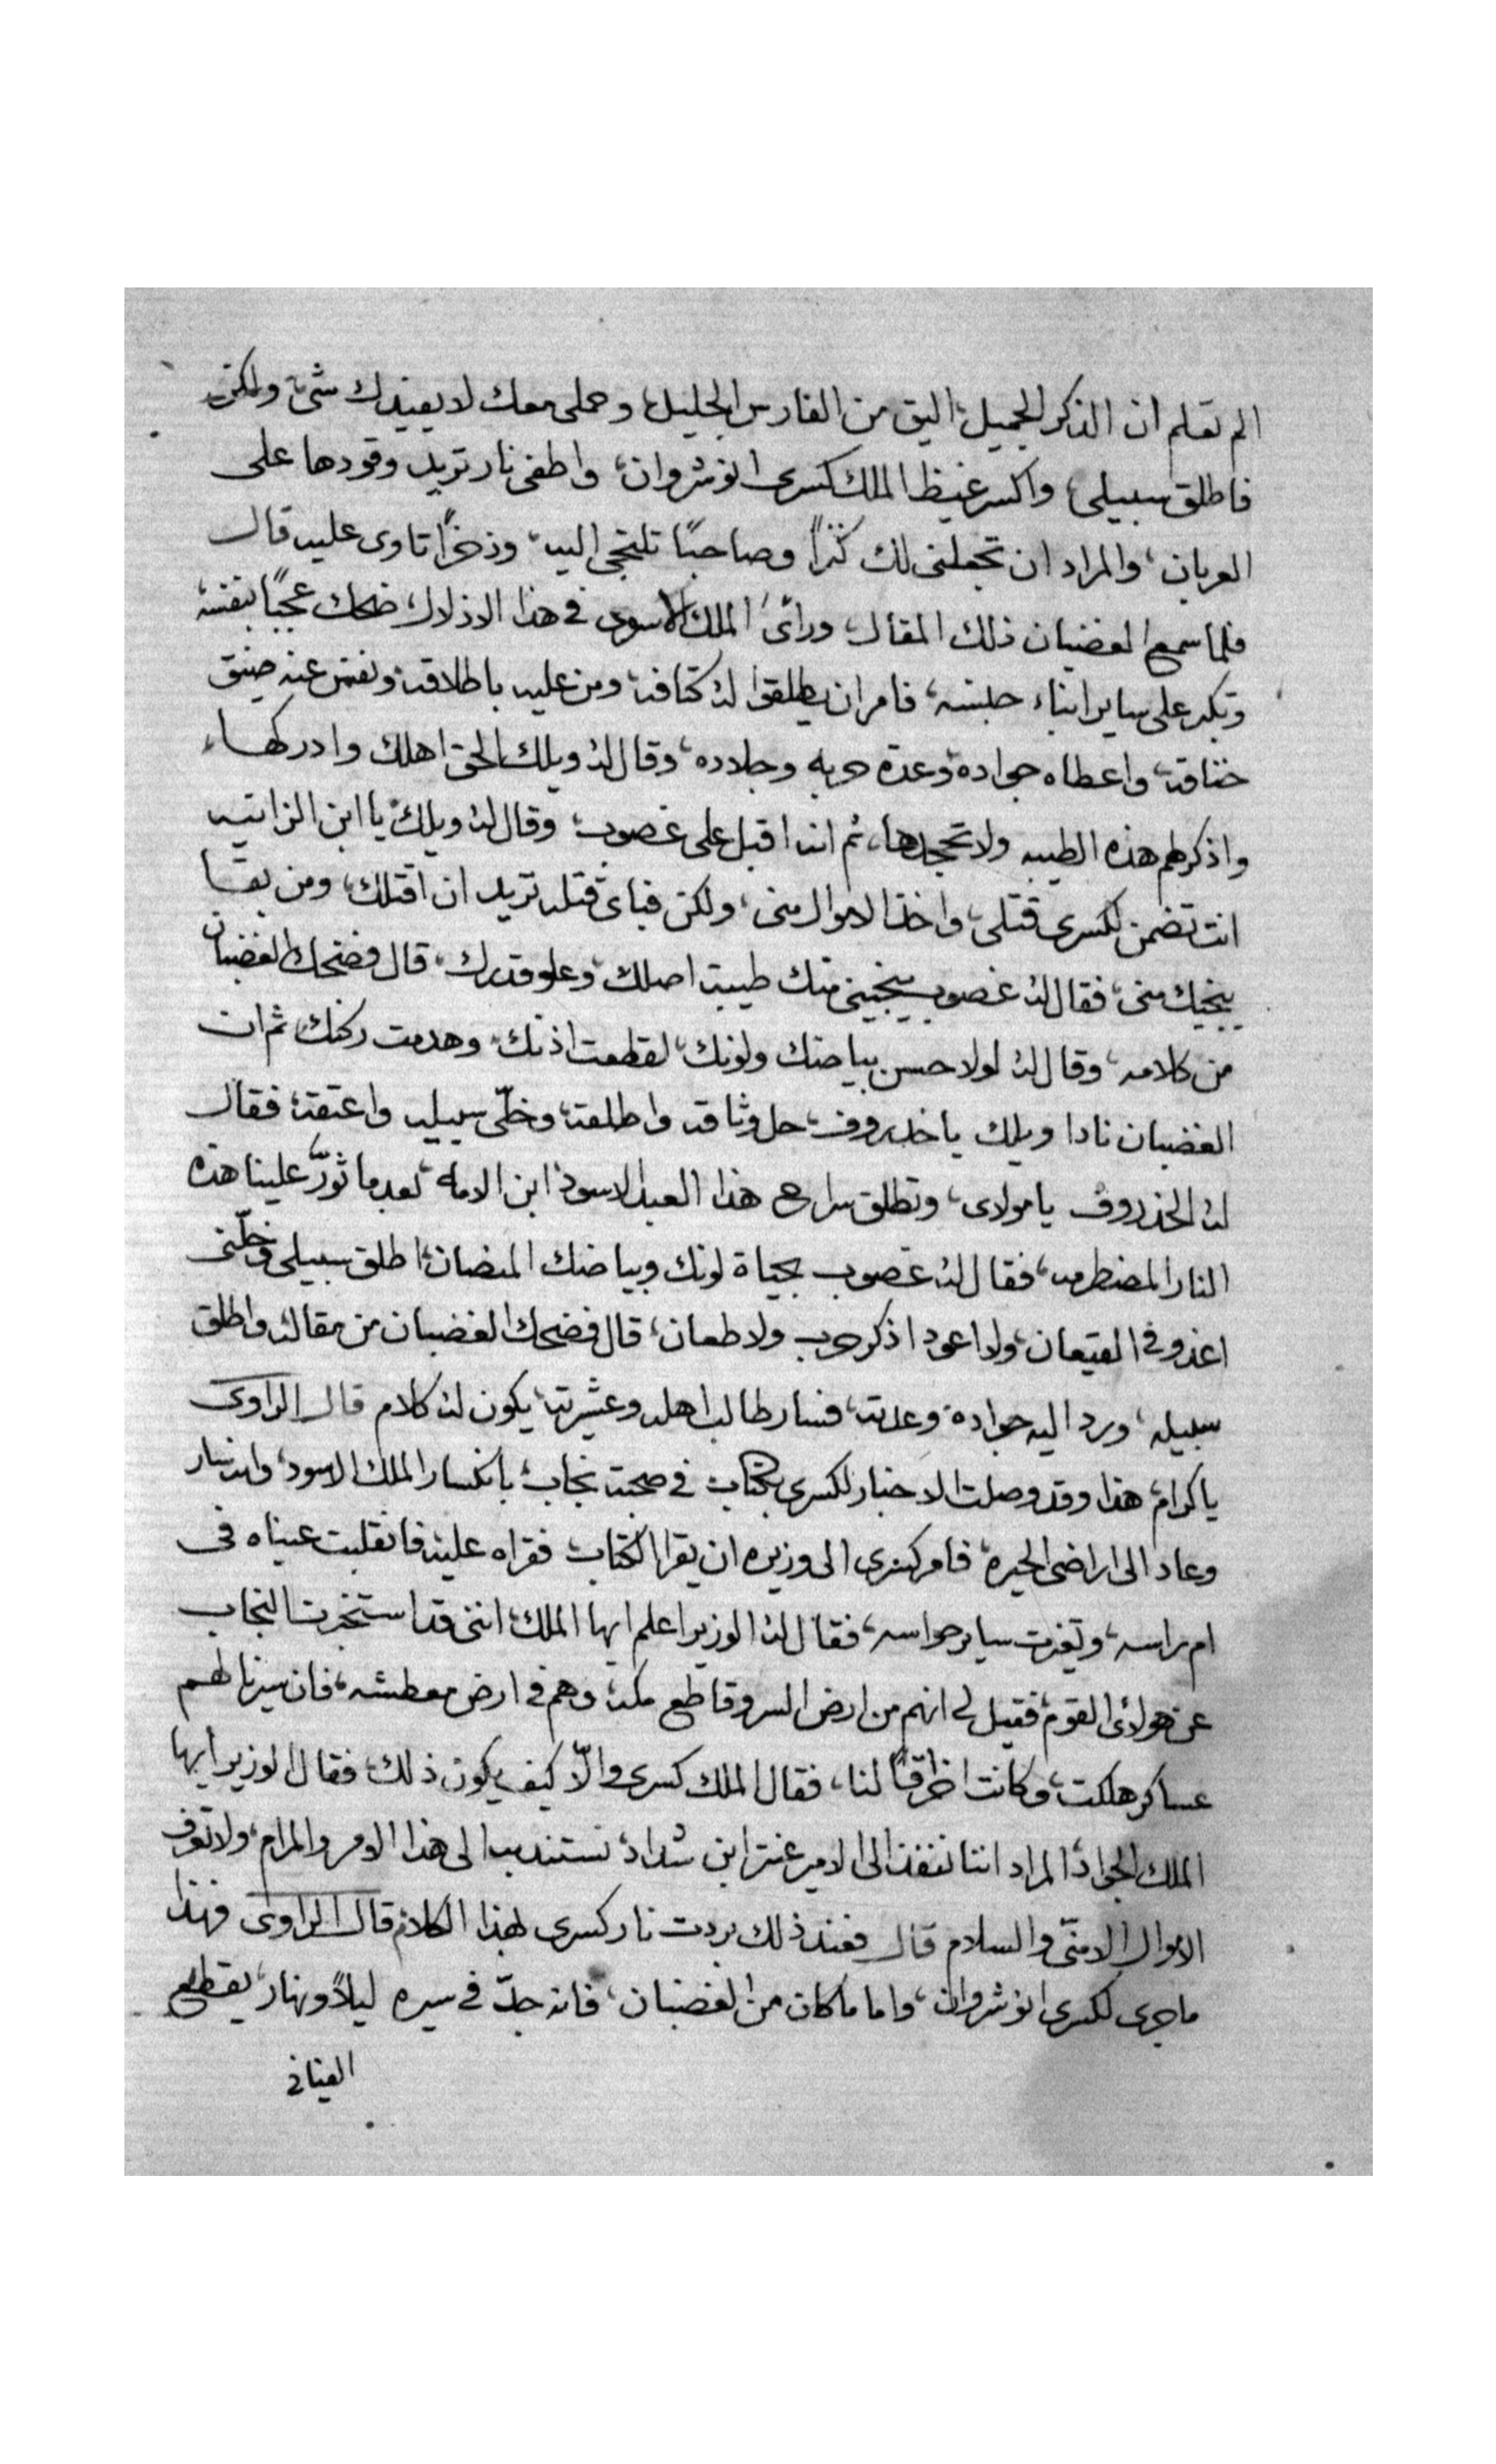 الم تعلم ان الذكر الجميل، اليق من الفارس الجليل، وحملى معك لا يفيدك شىء، ولكن
فاطلق سبيلى، واكسر غيظ الملك كسرى انوشروان، واطفى نار تريد وقودها على
العربان، والمراد ان تجعلنى لك كنزًا وصاحبًا تلتجى اليه، وذخرًا تاوى عليه قال
فلما سمع الغضبان ذلك المقال، وراىء الملك الاسود فى هذا الاذلال، ضحك عجبًا بنفسه،
وتكبر على ساير ابناء جلسه، فامر ان يطلقوا له كتافه، ومن عليه باطلاقه، ونفس عنه ضيق
خناقه، واعطاه جواده، وعدة حربه وجلاده، وقال له ويلك الحق اهلك وادركها،
واذكر لهم هذه الطيبه ولا تجحدها، ثم انه اقبل على غصوب، وقال له ويلك يا ابن الزانيه
انت تضمن لكسرى قتلى، واخذ الاموال منى، ولكن فباى قتله تريد ان اقتلك، ومن بقا
ينجيك منى، فقال له غصوب ينجينى منك طيبة اصلك، وعلو قدرك، قال فضحك الغضبان
من كلامه، وقال له لولا حسن بياضك ولونك، لقطعت اذنك، وهدمت ركنك، ثم ان
الغضبان نادا ويلك يا خدروف، حل وثاقه واطلقه، وخلّى سبيله واعتقه، فقال
له الخذروف يا مولاى، وتطلق سراح هذا العبد الاسود، ابن الامه، بعد ما ثورّ علينا هذه
النار المضطرمه، فقال له غصوب بحياة لونك وبياضك المنصان، اطلق سبيلى وخلّنى
اغدو فى القيعان، ولا اعود اذكر حرب ولا طعان، قال فضحك الغضبان من مقاله واطلق
سبيله، ورد اليه جواده، وعدته، فسار طالب اهله وعشيرته، يكون له كلام قال الراوى
يا كرام، هذا وقد وصلت الاخبار لكسرى بكتاب فى صحبة نجاب، بانكسار الملك الاسود، وانه سار
وعاد الى اراضى الحيره، فامر كسرى الى وزيره ان يقرا الكتاب فقراه عليه، فانقلبت عيناه فى
ام راسه، وتغيرت ساير حواسه، فقال له الوزير اعلم ايها الملك، اننى قد استخبرت النجاب
عن هولاىء القوم، فقيل لى انهم من ارض السرو قاطع مكه، وهم فى ارض معطشه، فان سيرنا لهم
عساكر هلكت، وكانت اخراقًا لنا، فقال الملك كسرى والّا كيف يكون ذلك، فقال الوزير ايها
الملك الجواد، المراد اننا ننفذ الى الامير عنتر ابن شداد، نستندبه الى هذا الامر والمرام، ولا تعرف
الاموال الا منّى والسلام قال فعند ذلك بردت نار كسرى لهذا الكلام، قال الراوى فهذا
ما جرى لكسرى انوشروان، واما ما كان من الغضبان، فانه جدّ فى سيره ليلاً ونهار، يقطع
الفيافى